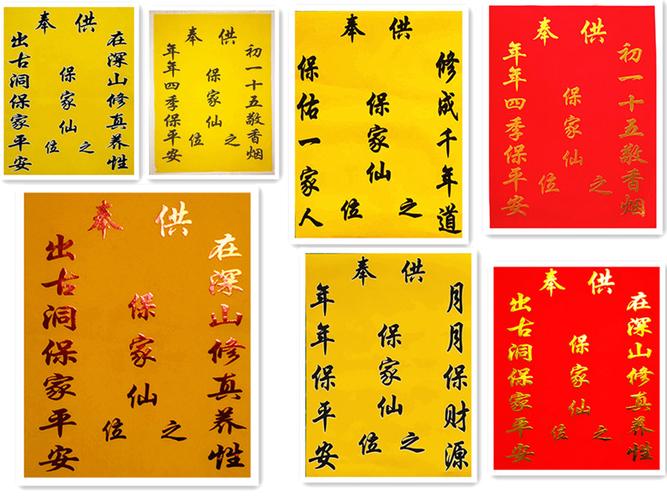 供奉
在深山修真养性
保家仙
之位
出古洞保家平安
供奉
初一十五敬香烟
保家仙
之位
年年四季保平安
供奉
修成千年道
保家仙
之位
保佑一家人
供奉
初一十五敬香烟
保家仙
之位
年年四季保平安
供奉
在深山修真养性
保家仙
之位
出古洞保家平安
供奉
月月保财源
保家仙
之位
年年保平安
供奉
在深山修真养性
保家仙
之位
出古洞保家平安